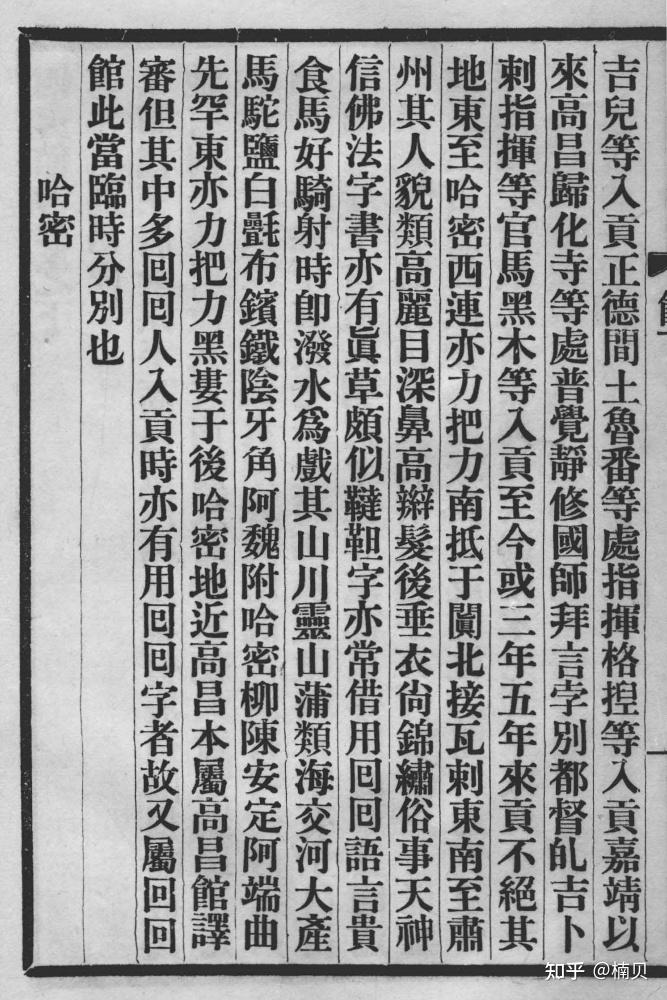 吉兒等入貢正德間土魯番等處指揮格揑等入貢嘉靖以
來高昌歸化寺等處普覺靜修國師拜言孛別都督癿吉卜
剌指揮等官馬黑木等入貢至今或三年五年來貢不絕其
地東至哈密西連亦力把力南抵于闐北接瓦剌東南至肅
州其人貌類高麗目深鼻高辮髮後垂衣尙錦繡俗事天神
信佛法字書亦有眞草頗似韃靼字亦常借用囘囘語言貴
食馬好騎射時卽潑水爲戲其山川靈山蒲類海交河大產
馬駝鹽白氎布鑌鐵陰牙角阿魏附哈密柳陳安定阿端曲
先罕東亦力把力黑婁于後哈密地近高昌本屬高昌館譯
審但其中多囘囘人入貢時亦有用囘囘字者故又屬回回
館此當臨時分別也
哈密
知乎 @楠贝